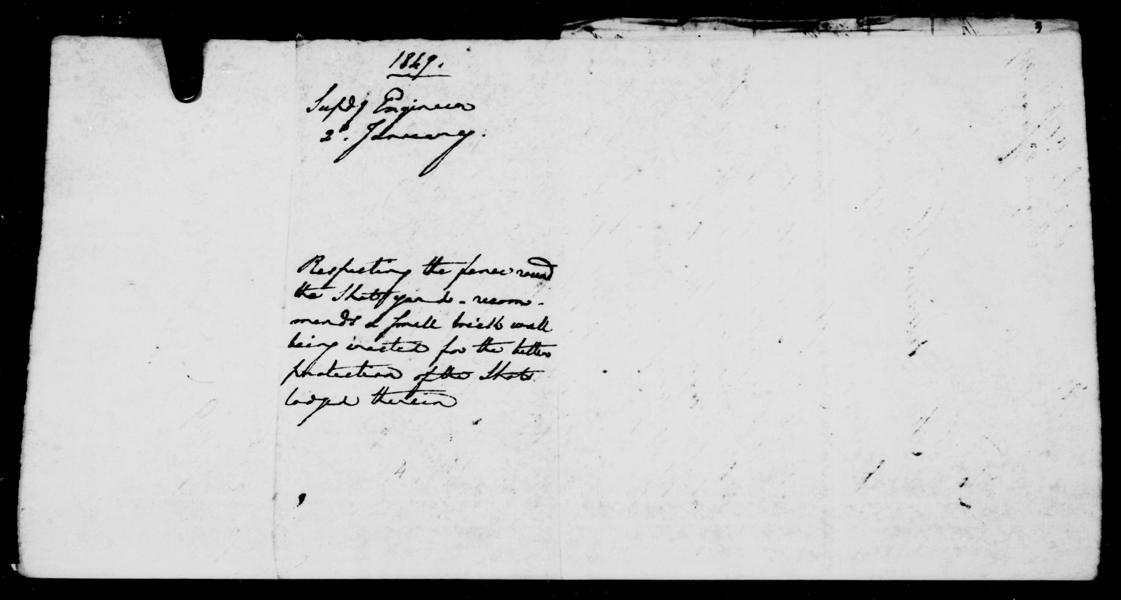 1849.
Supdg Engineer
2d. January.
Respecting the fence round
the Shot yard - recom-
mends a small brick wall
being erected for the better
protection of the Shots
lodged therein
4